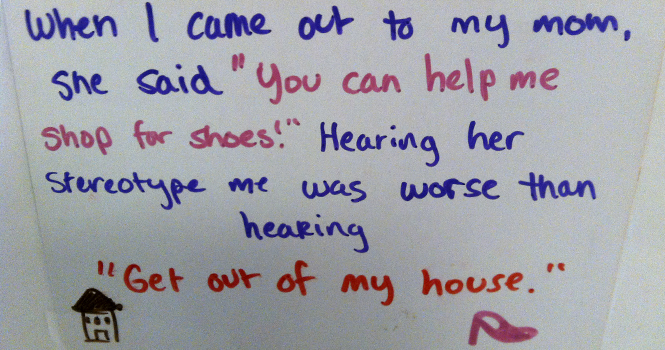 When I came out to my mom,
she said "You can help me
shop for shoes!" Hearing her
stereotype me was worse than
hearing
"Get out of my house."